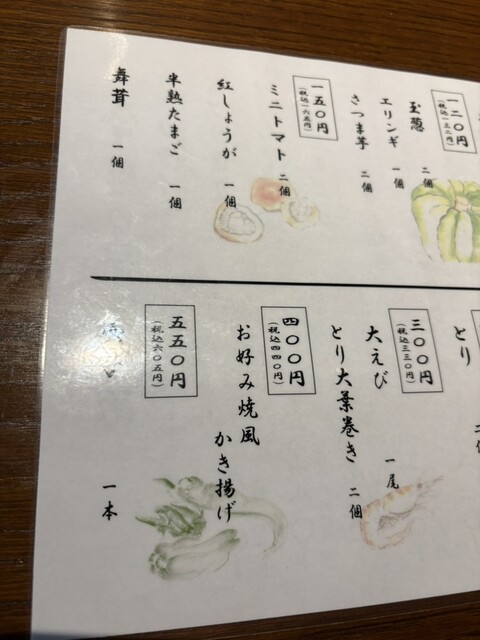 一二〇円
(税込一三二円)
玉葱 二個
エリンギ 一個
さつま芋 二個
一五〇円
(税込一六五円)
ミニトマト 二個
紅しょうが 一個
半熟たまご 一個
舞茸 一個
とり 二個
三〇〇円
(税込三三〇円)
大えび 一尾
とり大葉巻き 二個
四〇〇円
(税込四四〇円)
お好み焼風
かき揚げ
五五〇円
(税込六〇五円)
一本